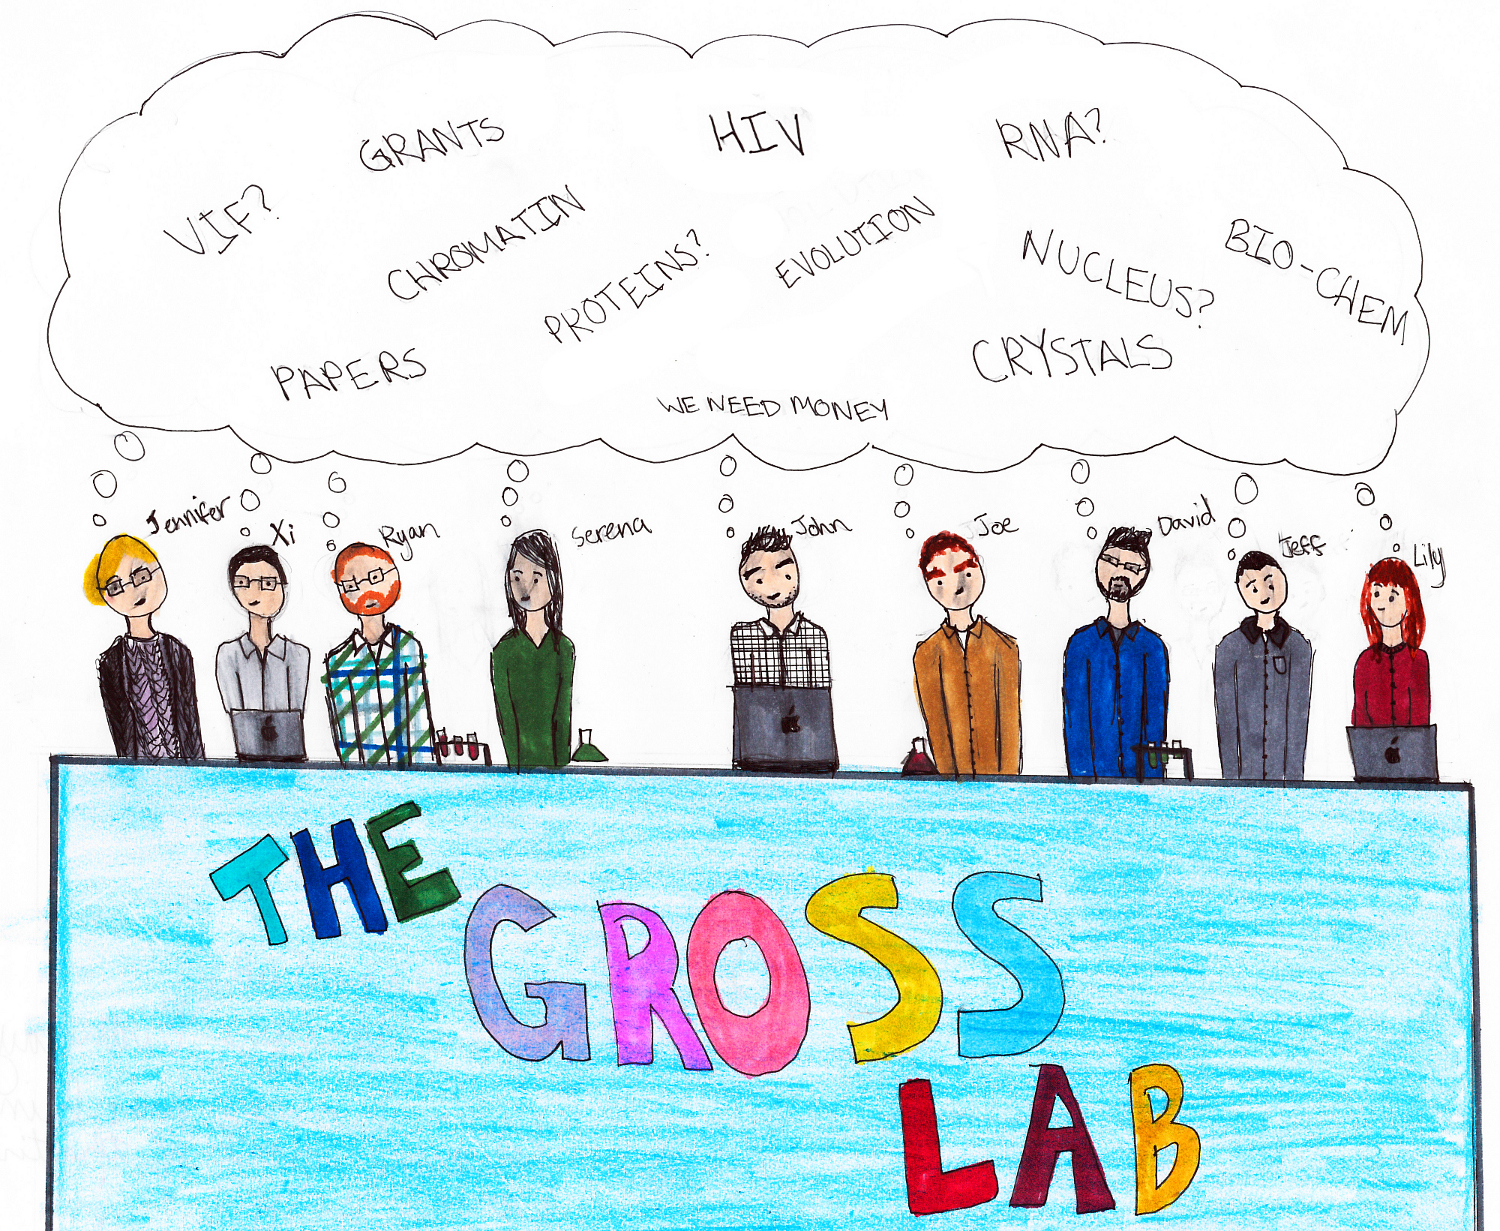 GRANTS
HIV
RNA?
VIF?
CHROMATIN
PROTEINS?
EVOLUTION
NUCLEUS?
BIO-CHEM
PAPERS
CRYSTALS
WE NEED MONEY
Jennifer
Xi
Ryan
Serena
John
Joe
David
Jeff
Lily
THE
GROSS
LAB